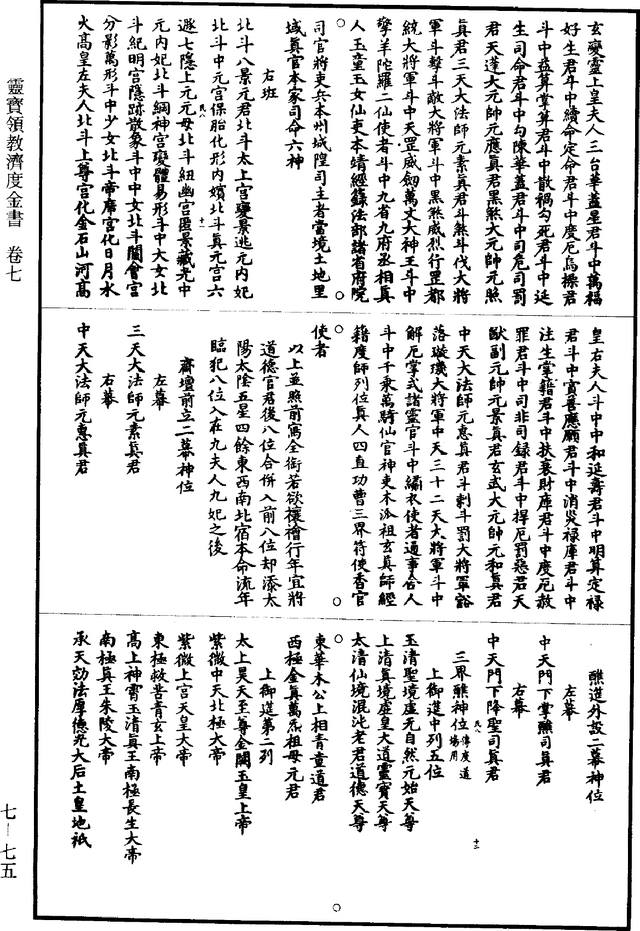 玄變靈上皇夫人三台華蓋星君斗中萬福
好生君斗中續命定命君斗中度厄烏桵君
斗中益算掌算君斗中散禍勾死君斗中延
生司命君斗中勾陳華蓋君斗中司危司罰
君天蓬大元帥元應眞君黑煞大元帥元照
眞君三天大法師元素眞君斗煞斗伐大將
軍斗擊斗敵大將軍斗中黑煞威烈行罡都
統大將軍斗中天罡威劔萬丈大神王斗中
擎羊陀羅二仙使者斗中九省九府丞相眞
人玉童玉女仙吏本靖經籙法部諸省府院
司官將吏兵本州城隍司主者當境土地里
域眞官本家司命六神
右班
北斗八景元君北斗太上宮變景逃元內妃
北斗中元宮保胎化形內嬪北斗眞元宮六
遯七隱上元元母北斗紐幽宮匿景藏光中
元內妃北斗綱神宮變體易形斗中大女北
斗紀明宮隱跡散象斗中中女北斗闓會宮
分影萬形斗中少女北斗帝席宮化日月水
火高皇左夫人北斗上尊宮化金石山河高
皇右夫人斗中中和延壽君斗中明算定祿
君斗中賞善應願君斗中消災祿庫君斗中
注生掌籍君斗中扶衰財庫君斗中度厄赦
罪君斗中司非司錄君斗中捍厄罰惡君天
猷副元帥元景眞君玄武大元帥元和眞君
中天大法師元惠眞君斗剌斗罰大將軍豁
落璇璣大將軍中天三十二天大將軍斗中
解厄掌式諸靈官斗中繡衣使者通事舍人
斗中千乘萬騎仙官神吏本派祖玄眞師經
籍度師列位眞人四直功曹三界符使香官
使者
以上並照前寫全銜若欲禳禬行年宜將
道德官君後八位合併入前八位却添太
陽太陰五星四餘東西南北宿本命流年
臨犯八位入在九夫人九妃之後
齋壇前立二幕神位
左幕
三天大法師元素眞君
右幕
中天大法師元惠眞君
醮筵外設二幕神位
左幕
中天門下掌醮司眞君
右幕
中天門下降聖司眞君
三界醮神位 傳度道場用
上御筵中列五位
玉清聖境虛无自然元始天尊
上清眞境虛皇大道靈寶天尊
太清仙境混沌老君道德天尊
東華木公上相青童道君
西極金眞萬炁祖母元君
上御筵第二列
太上昊天至尊金闕玉皇上帝
紫微中天北極大帝
紫微上宮天皇大帝
東極救苦青玄上帝
高上神霄玉清眞王南極長生大帝
南極眞王朱陵大帝
承天效法厚德光大后土皇地祇
靈寶領教濟度金書 卷七
七—七五